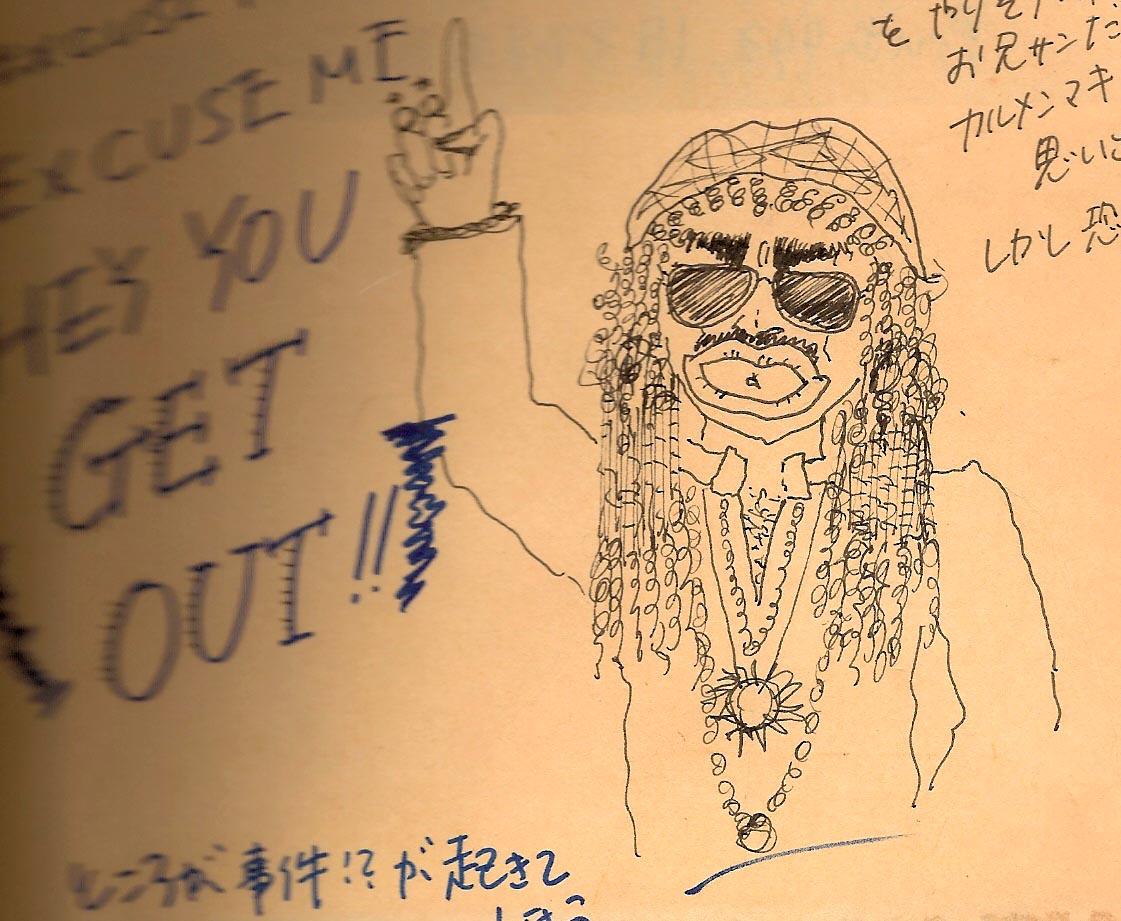 EXCUSE
EXCUSE ME
HEY YOU
GET
OUT!!
を やりそ
お兄サンだ
カルメンマキ
思い
しかし 恐
ところが 事件!? が 起きて
しまう